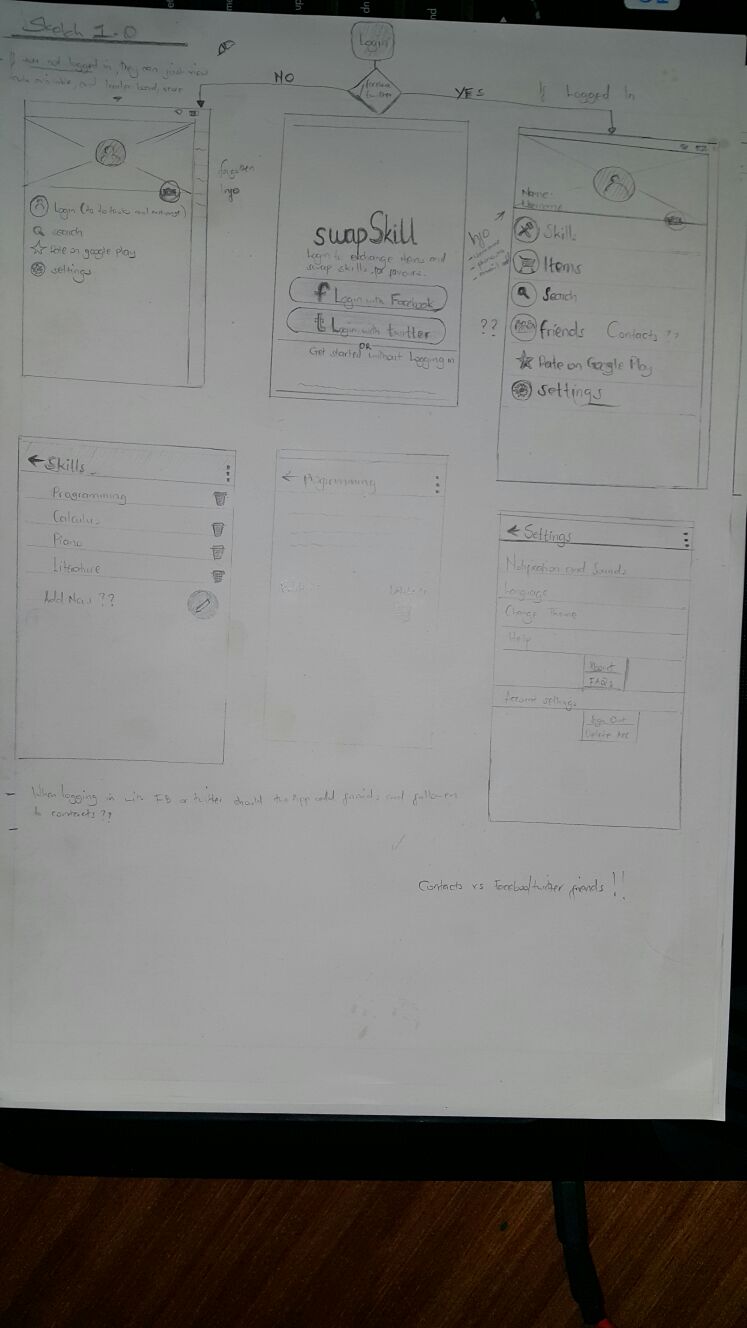 Sketch 1.0
Login
If user not logged in, they can just view
and leader board, store
NO
YES
If Logged In
Login
search
Rate on google Play
settings
forgotten
Info
swapSkill
Login to exchange items and
swap skills for favours.
f Login with Facebook
t Login with twitter
OR
Get started without Logging in
Info
Name:
Username
Skill
Items
Search
??
friends Contacts ??
Rate on Google Play
settings
← Skills
Programming
Calculus
Piano
Literature
Add New ??
← Programming
← Settings
Notification and Sounds
Language
Change Theme
Help
About
FAQs
Account settings
Sign Out
Delete Acc
When logging in with FB or twitter should the App add friends and followers
to contacts??
Contacts vs Facebook/twitter friends!!